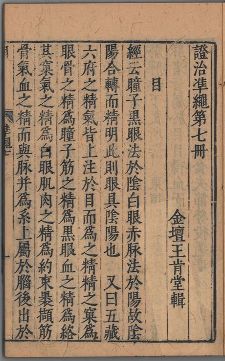 證治準繩第七冊
金壇王肯堂輯
目
經云瞳子黑眼法於陰白眼赤脉法於陽故陰
陽合轉而精明此則眼具陰陽也又曰五藏
六府之精氣皆上注於目而為之精精之窠為
眼骨之精為瞳子筋之精為黑眼血之精為絡
其窠氣之精為白眼肌肉之精為約束裹擷筋
骨氣血之精而與脉并為系上屬於腦後出於